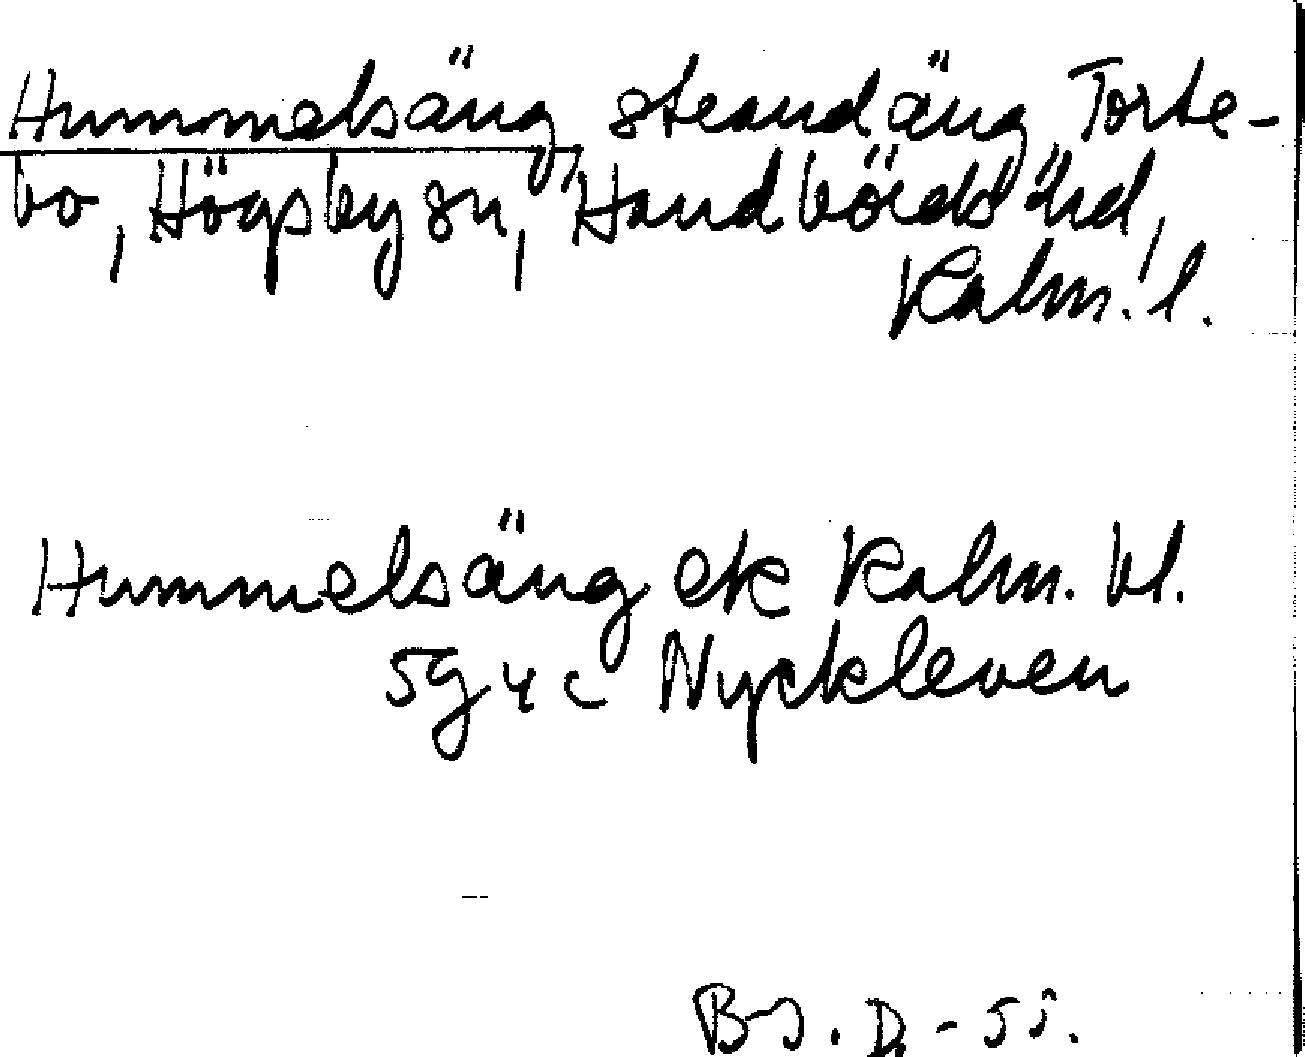 Hummelsäng, strandäng Torte-
bo, Högsby sn, Handbörds hd,
Kalm. l.
Hummelsäng ek Kalm. bl.
5g 4c Nyckleven